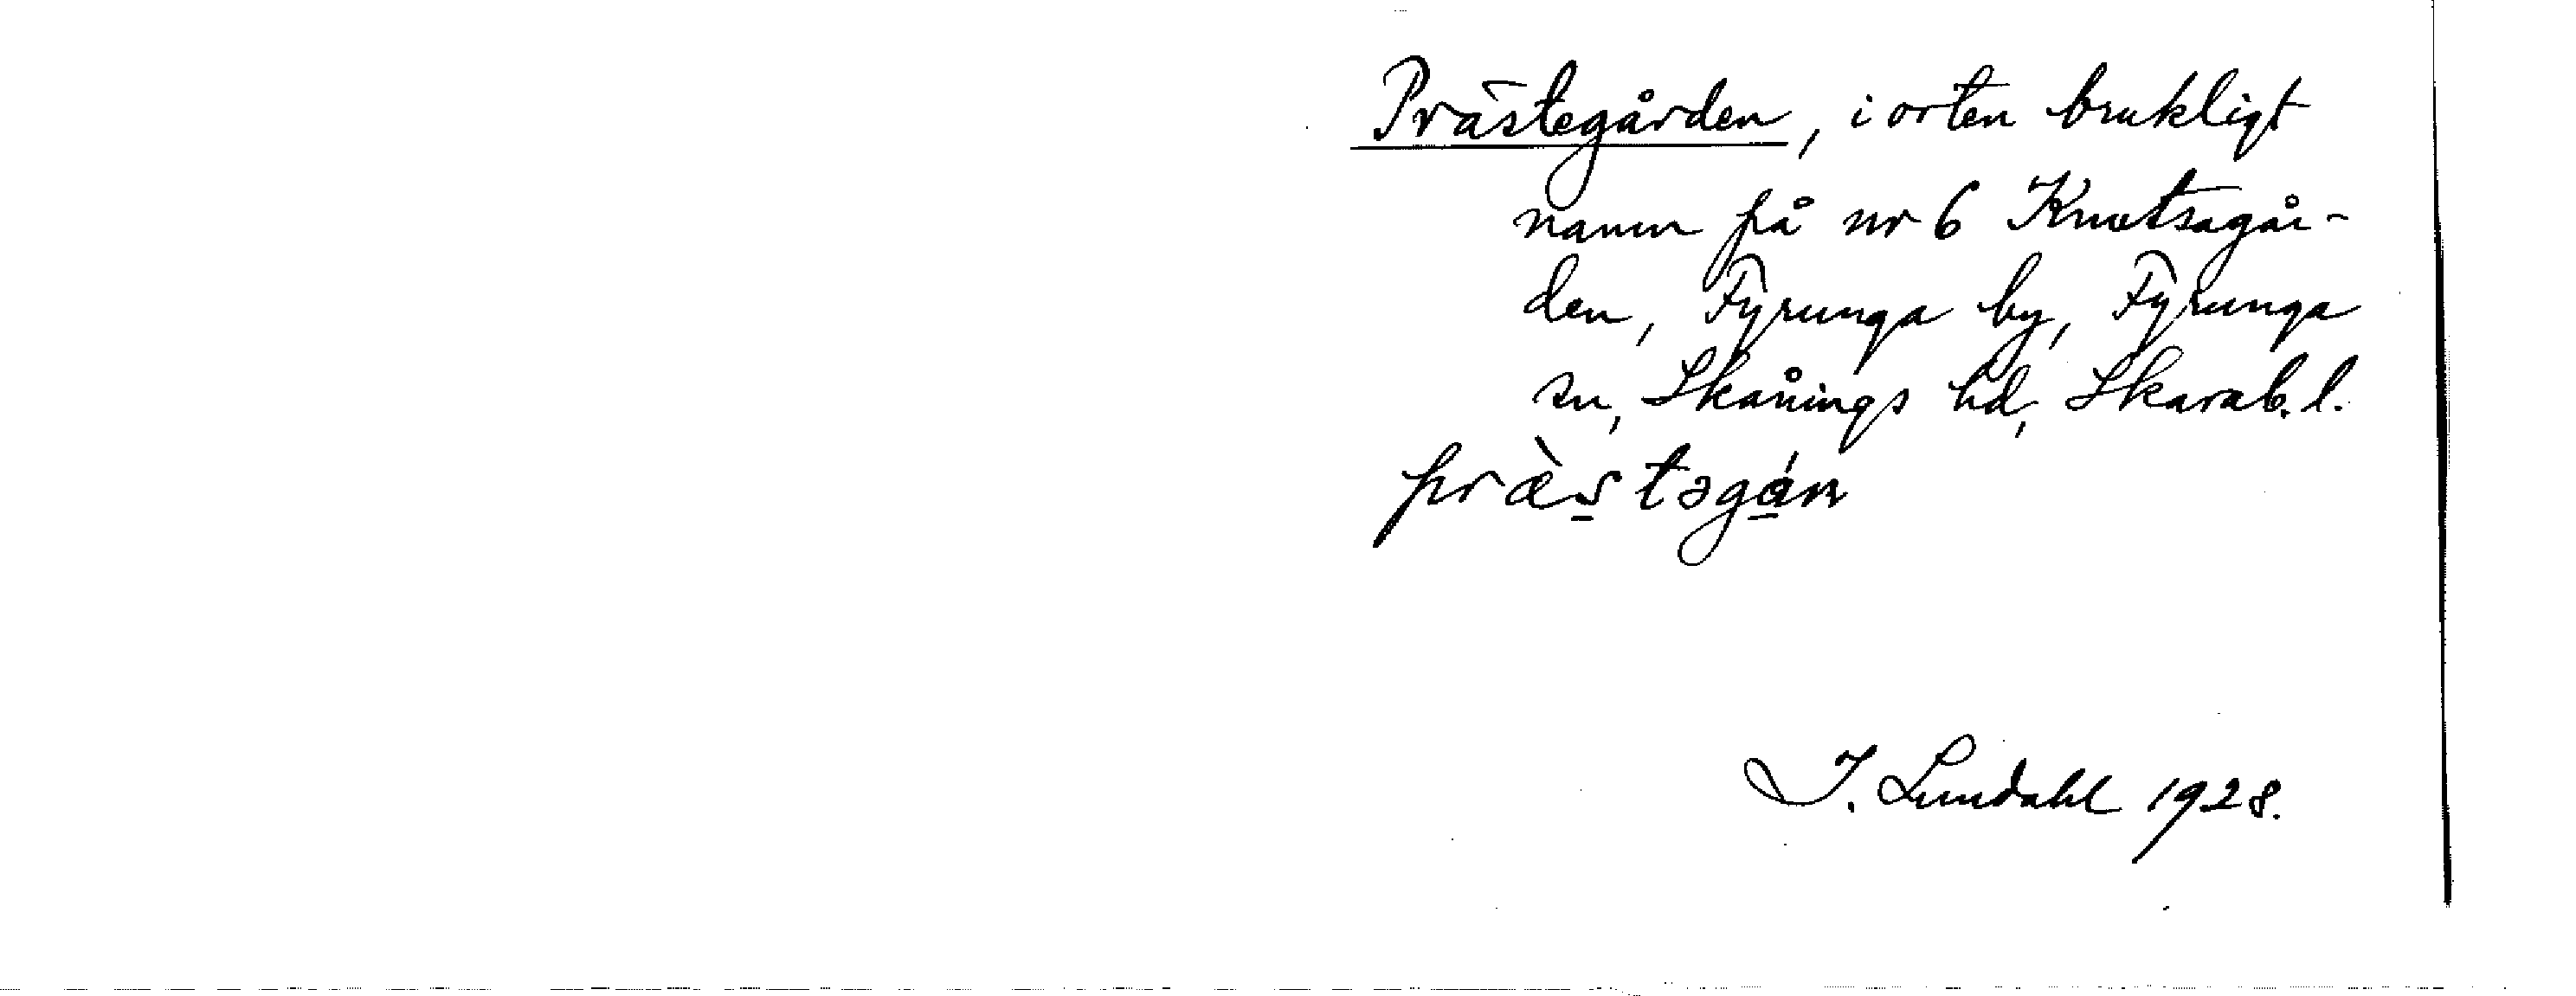 Prästegården, i orten brukligt
namn på nr 6 Knutsagår-
den, Fyrunga by, Fyrunga
sn, Skånings hd, Skarab. l.
præ̀s̠təgá̠n
I. Lundahl 1928.